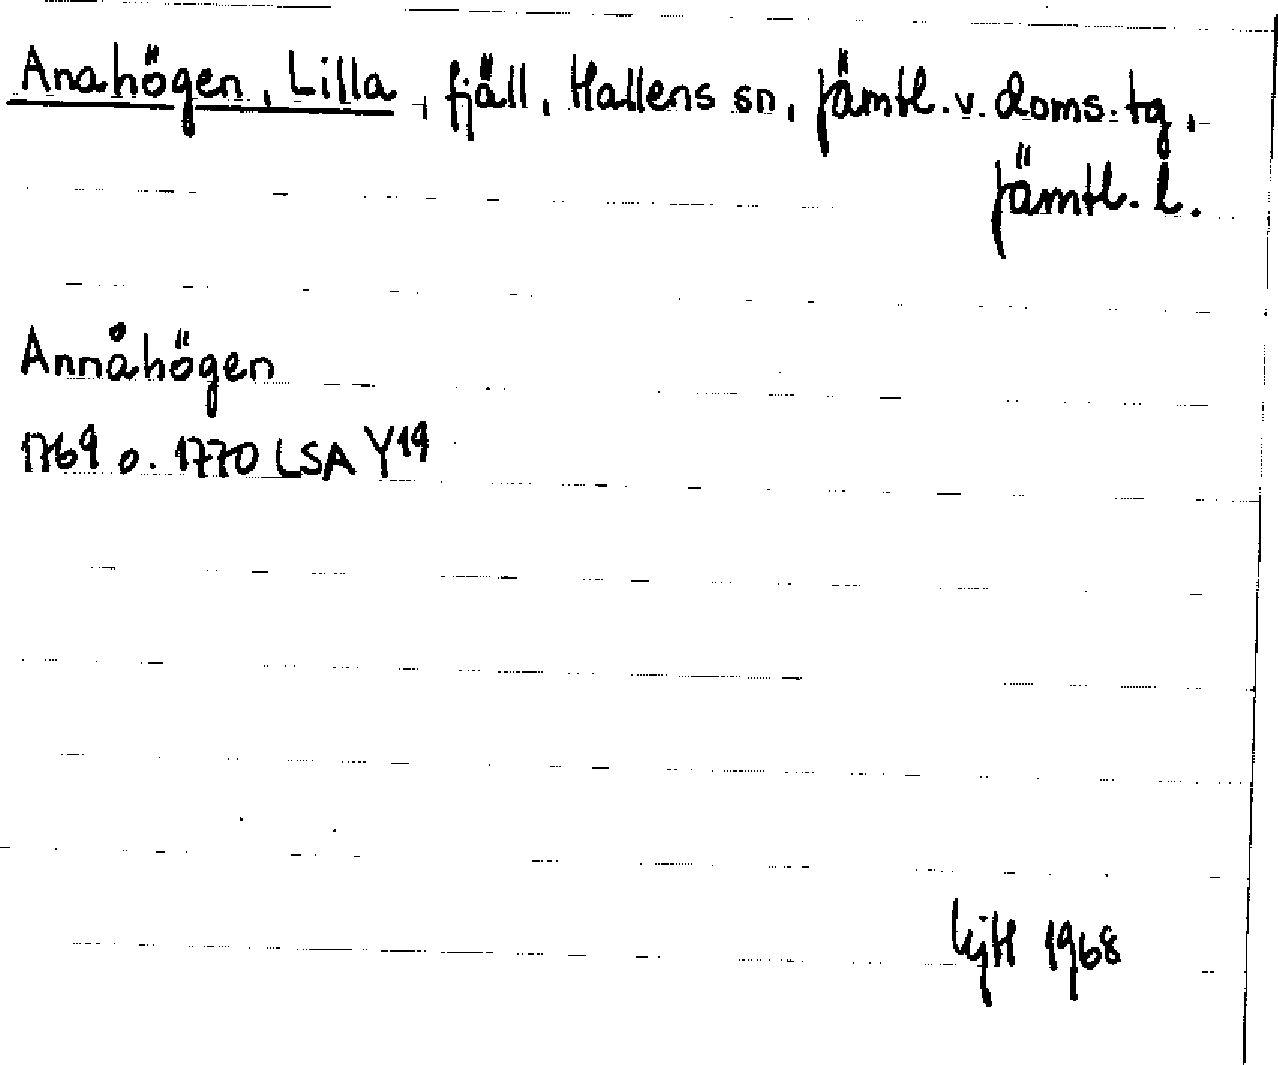 Anahögen, Lilla, fjäll, Hallens sn, Jämtl. v. doms. tg,
Jämtl. l.
Annåhögen
1769 o. 1770 LSA Y19
1968